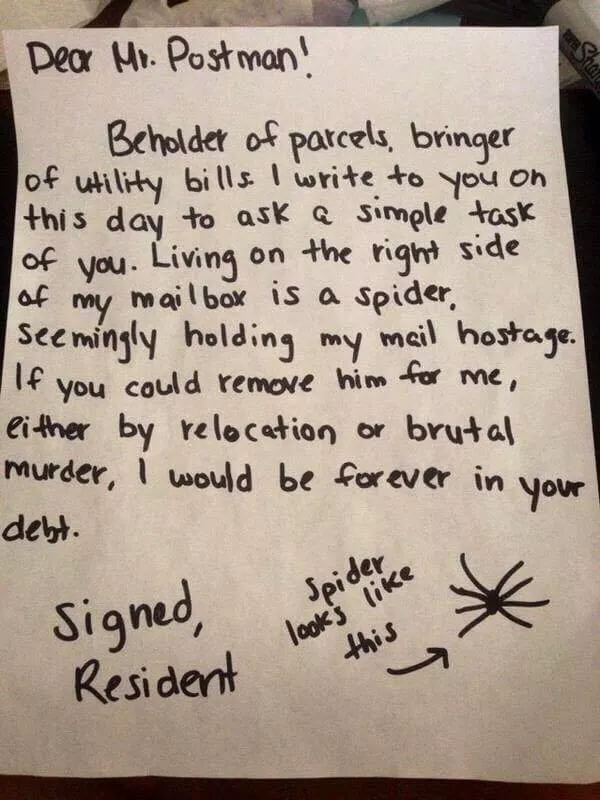 Dear Mr. Postman!
Beholder of parcels, bringer
of utility bills. I write to you on
this day to ask a simple task
of you. Living on the right side
of my mailbox is a spider,
seemingly holding my mail hostage.
If you could remove him for me,
either by relocation or brutal
murder, I would be forever in your
debt.
Signed,
Resident
Spider
looks like
this